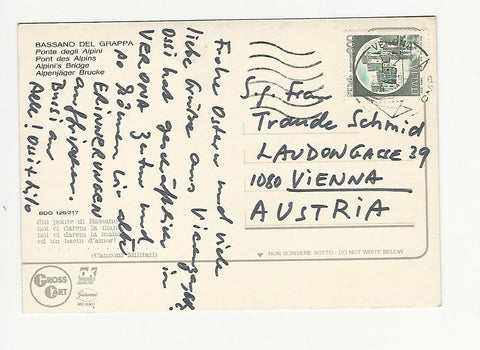 BASSANO DEL GRAPPA
Ponte degli Alpini
Pont des Alpins
Alpini's Bridge
Alpenjäger Brucke
Frohe Ostern und viele
liebe Grüße aus Vicenza,
Ossi hat geschäftlich in
VERONA zu tun und
so können wir alte
ERINNERUNGEN
auffrischen
Bussi an
Alle! Ossi +
Sg. Frau
Traude Schmid
LAUDONGASSE 39
1080 VIENNA
AUSTRIA
BDG 126/217
Sul ponte di Bassano
noi ci darem la man
noi ci darem la man
ed un bacin d'amor!
(Canzoni Militari)
▼ NON SCRIVERE SOTTO - DO NOT WRITE BELOW
GROSS
CART
MILANO
ITALIA